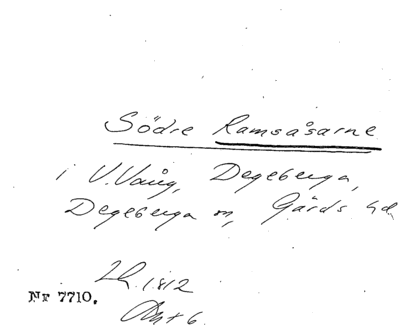 Södre Ramsåsarne
i V. Vång, Degeberga,
Degeberga sn, Gärds hd
1812
Nr 7710.
6.